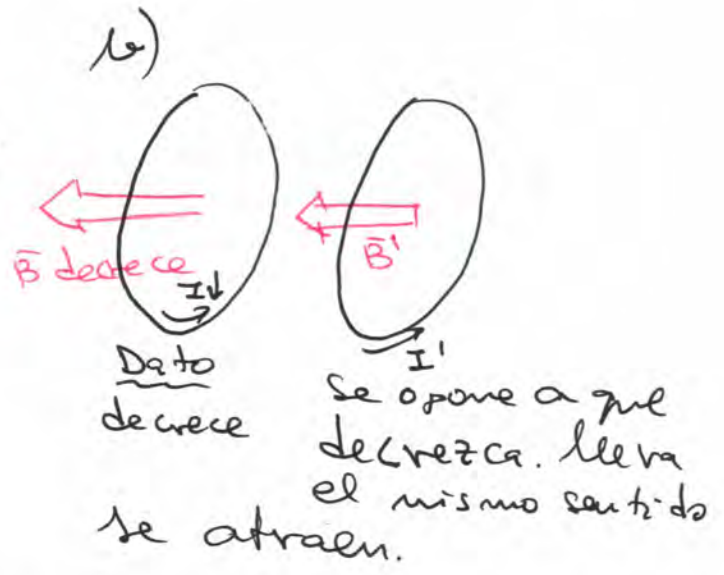 b)
B̄ decrece
I↓
B̄'
Dato
decrece
I'
se opone a que
decrezca. lleva
el mismo sentido
se atraen.